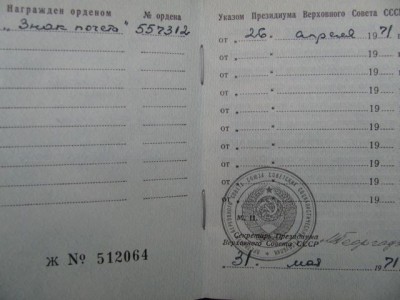 Награжден орденом
№ ордена
„Знак почета"
557312
Ж № 512064
Указом Президиума Верховного Совета СССР
от „ 26 „ апреля 1971 г
от „ 19
от „ 19
от „ 19
от „ 19
от „ 19
от „ 19
от „ 19
М. П.
Секретарь Президиума
Верховного Совета СССР
„ 31 „ мая 1971